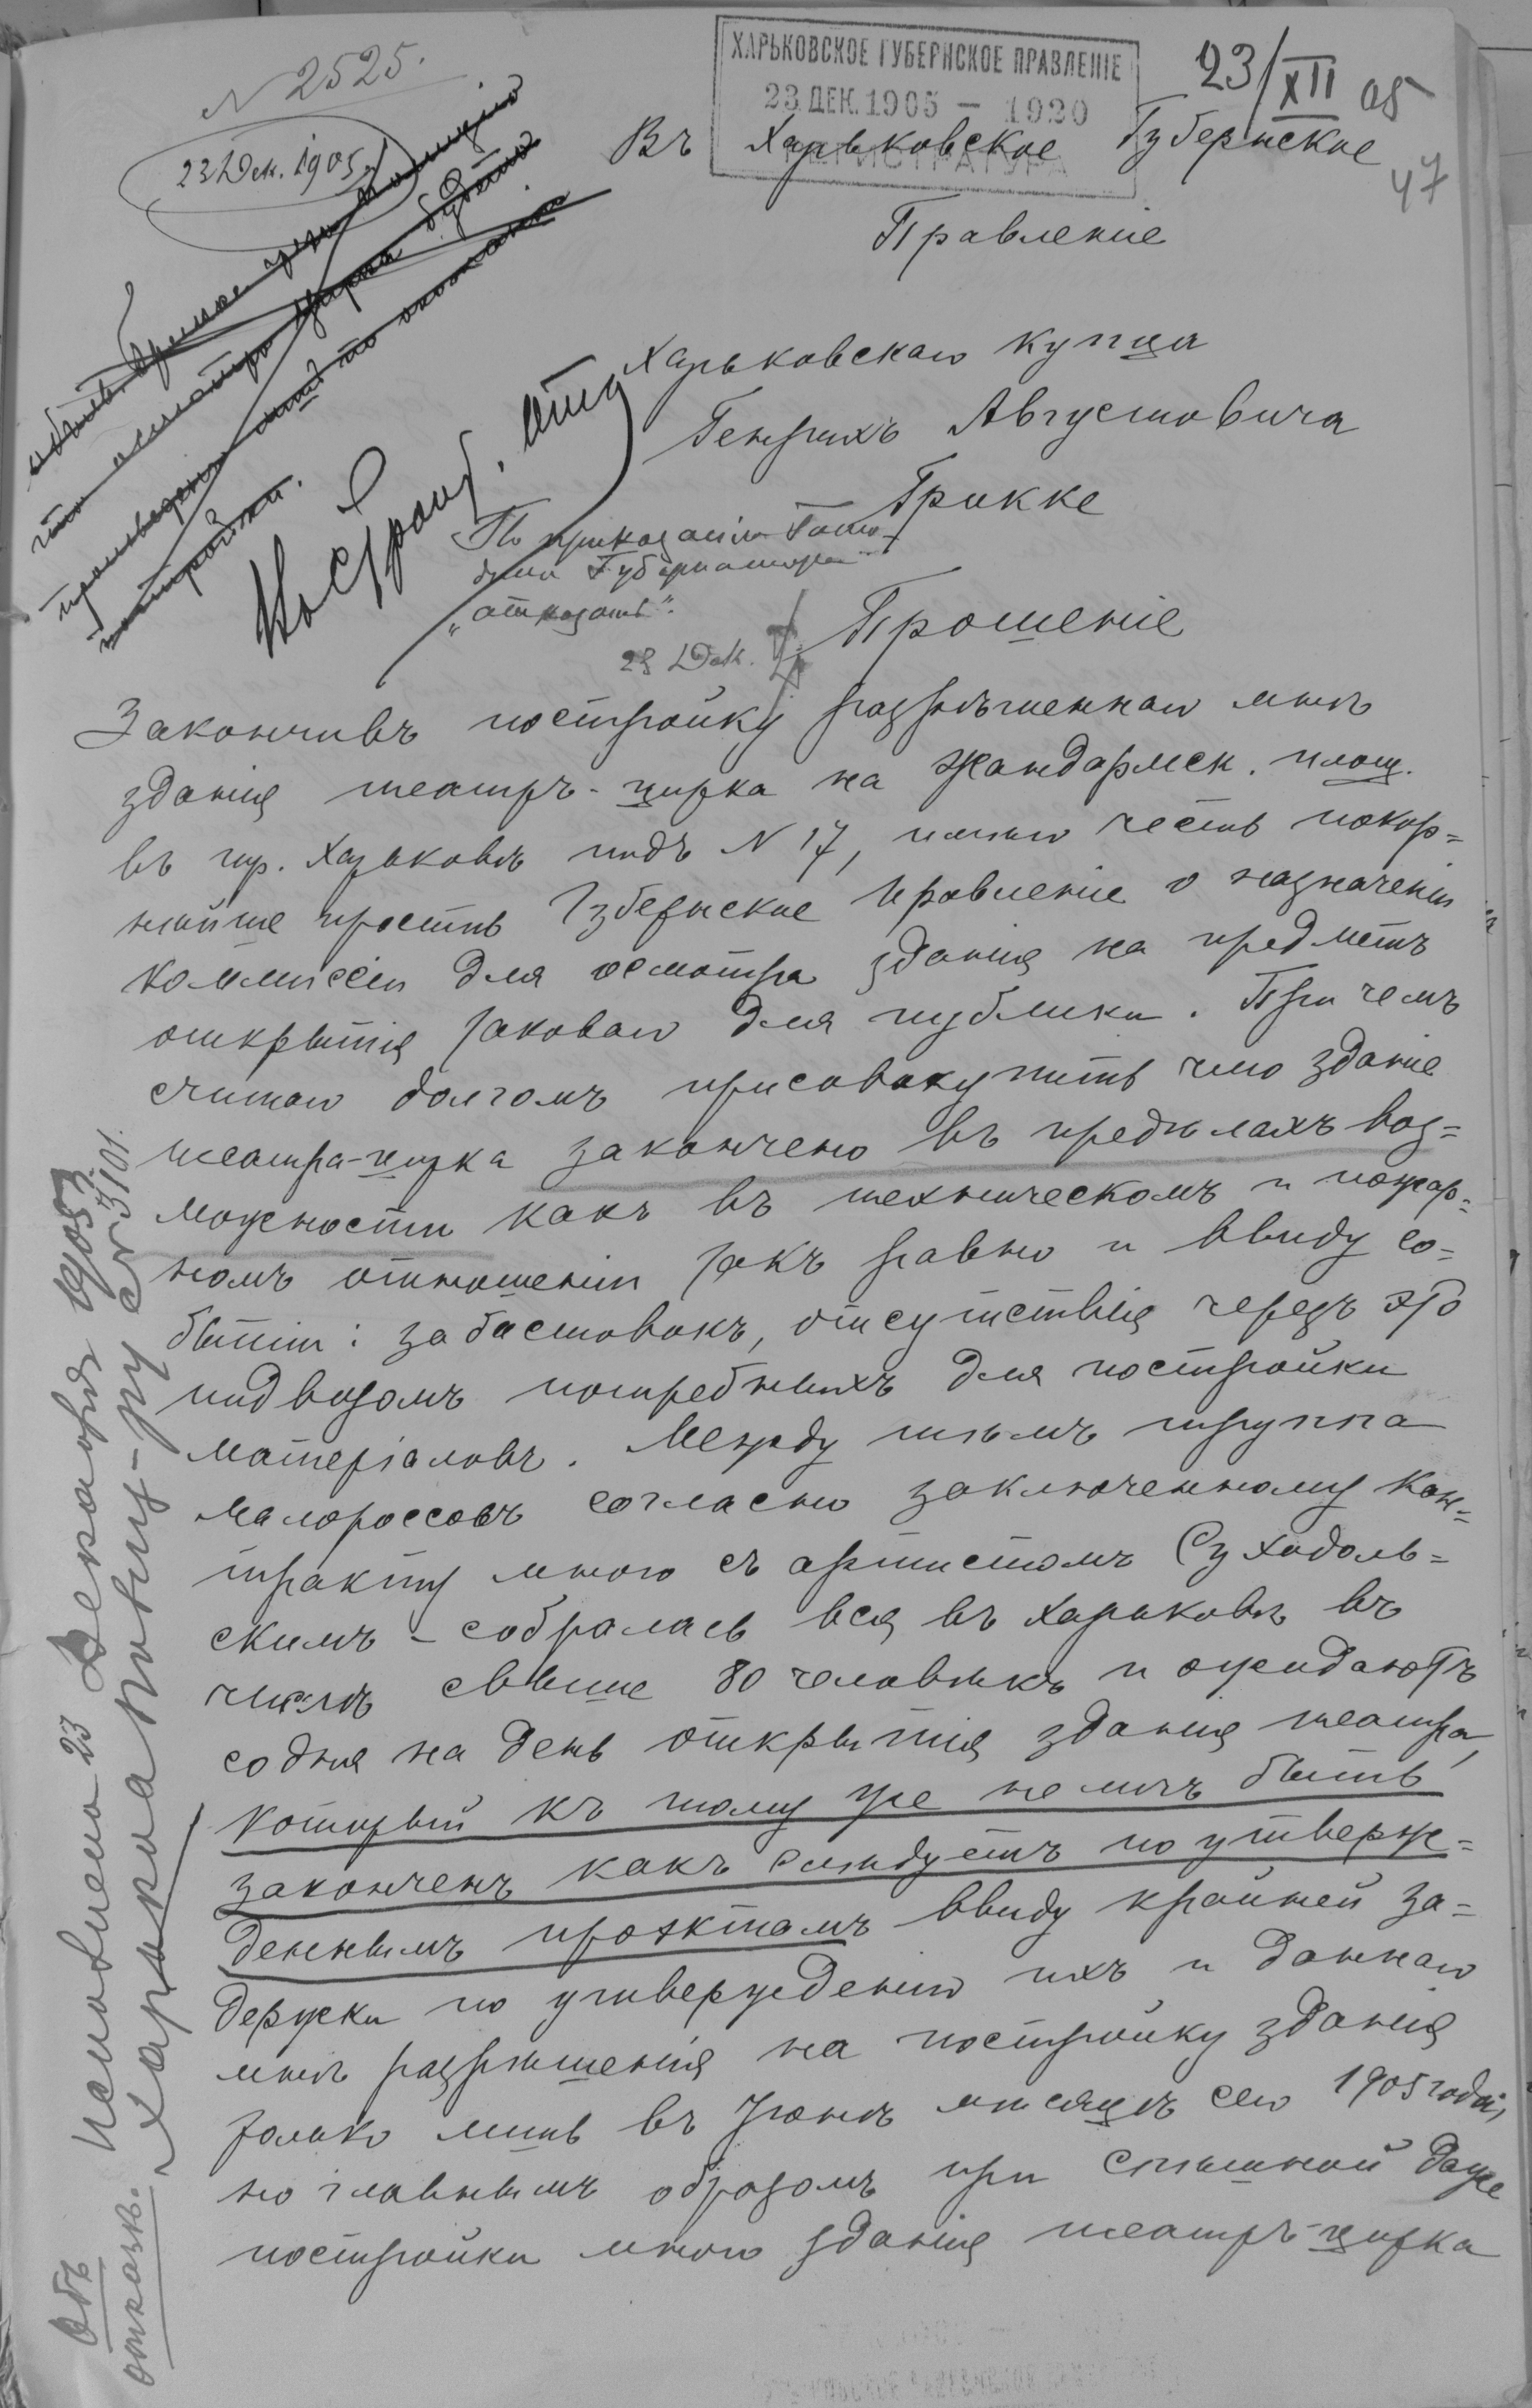 N 2525.
23 Дек. 1905
ХАРЬКОВСКОЕ ГУБЕРНСКОЕ ПРАВЛЕНІЕ
23 ДЕК. 1905 — 1920
РЕГИСТРАТУРА
23/XII 05
47
Въ Харьковское Губернское
Правленіе
Харьковскаго купца
Генрихъ Августовича
Грикке
По приказанію Госпо-
дина Губернатора
„отказать".
23 Дек.
Прошеніе
Закончивъ постройку разрѣшеннаго мнѣ
зданія театръ-цирка на Жандармск. площ.
въ гор. Харьковѣ подъ N 17, имѣю честь покор=
нѣйше просить Губернское Правленіе о назначеніи
коммиссіи для осмотра зданія на предметъ
открытія таковаго для публики. При чемъ
считаю долгомъ присовокупить что зданіе
театра-цирка закончено въ предѣлахъ воз=
можности какъ въ техническомъ и пожар=
номъ отношеніи такъ равно и ввиду со=
бытій: забастовокъ, отсутствія черезъ это
подвозомъ потребныхъ для постройки
матеріаловъ. Между тѣмъ труппа
малороссовъ согласно заключенному кон=
тракту мною съ артистомъ Суходоль=
скимъ – собралась вся въ Харьковѣ въ
числѣ свыше 80 человѣкъ и ожидаютъ
со дня на день открытія зданія театра,
который къ тому же не могъ быть
законченъ какъ слѣдуетъ по утверж=
деннымъ проэктамъ ввиду крайней за=
держки по утвержденію ихъ и даннаго
мнѣ разрѣшенія на постройку зданія
только лишь въ Іюнѣ мѣсяцѣ сего 1905 года,
но главнымъ образомъ при спѣшной даже
постройки мною зданія театръ-цирка
Объ
отказѣ.
Исполнено 23 Декабря 1905 г.